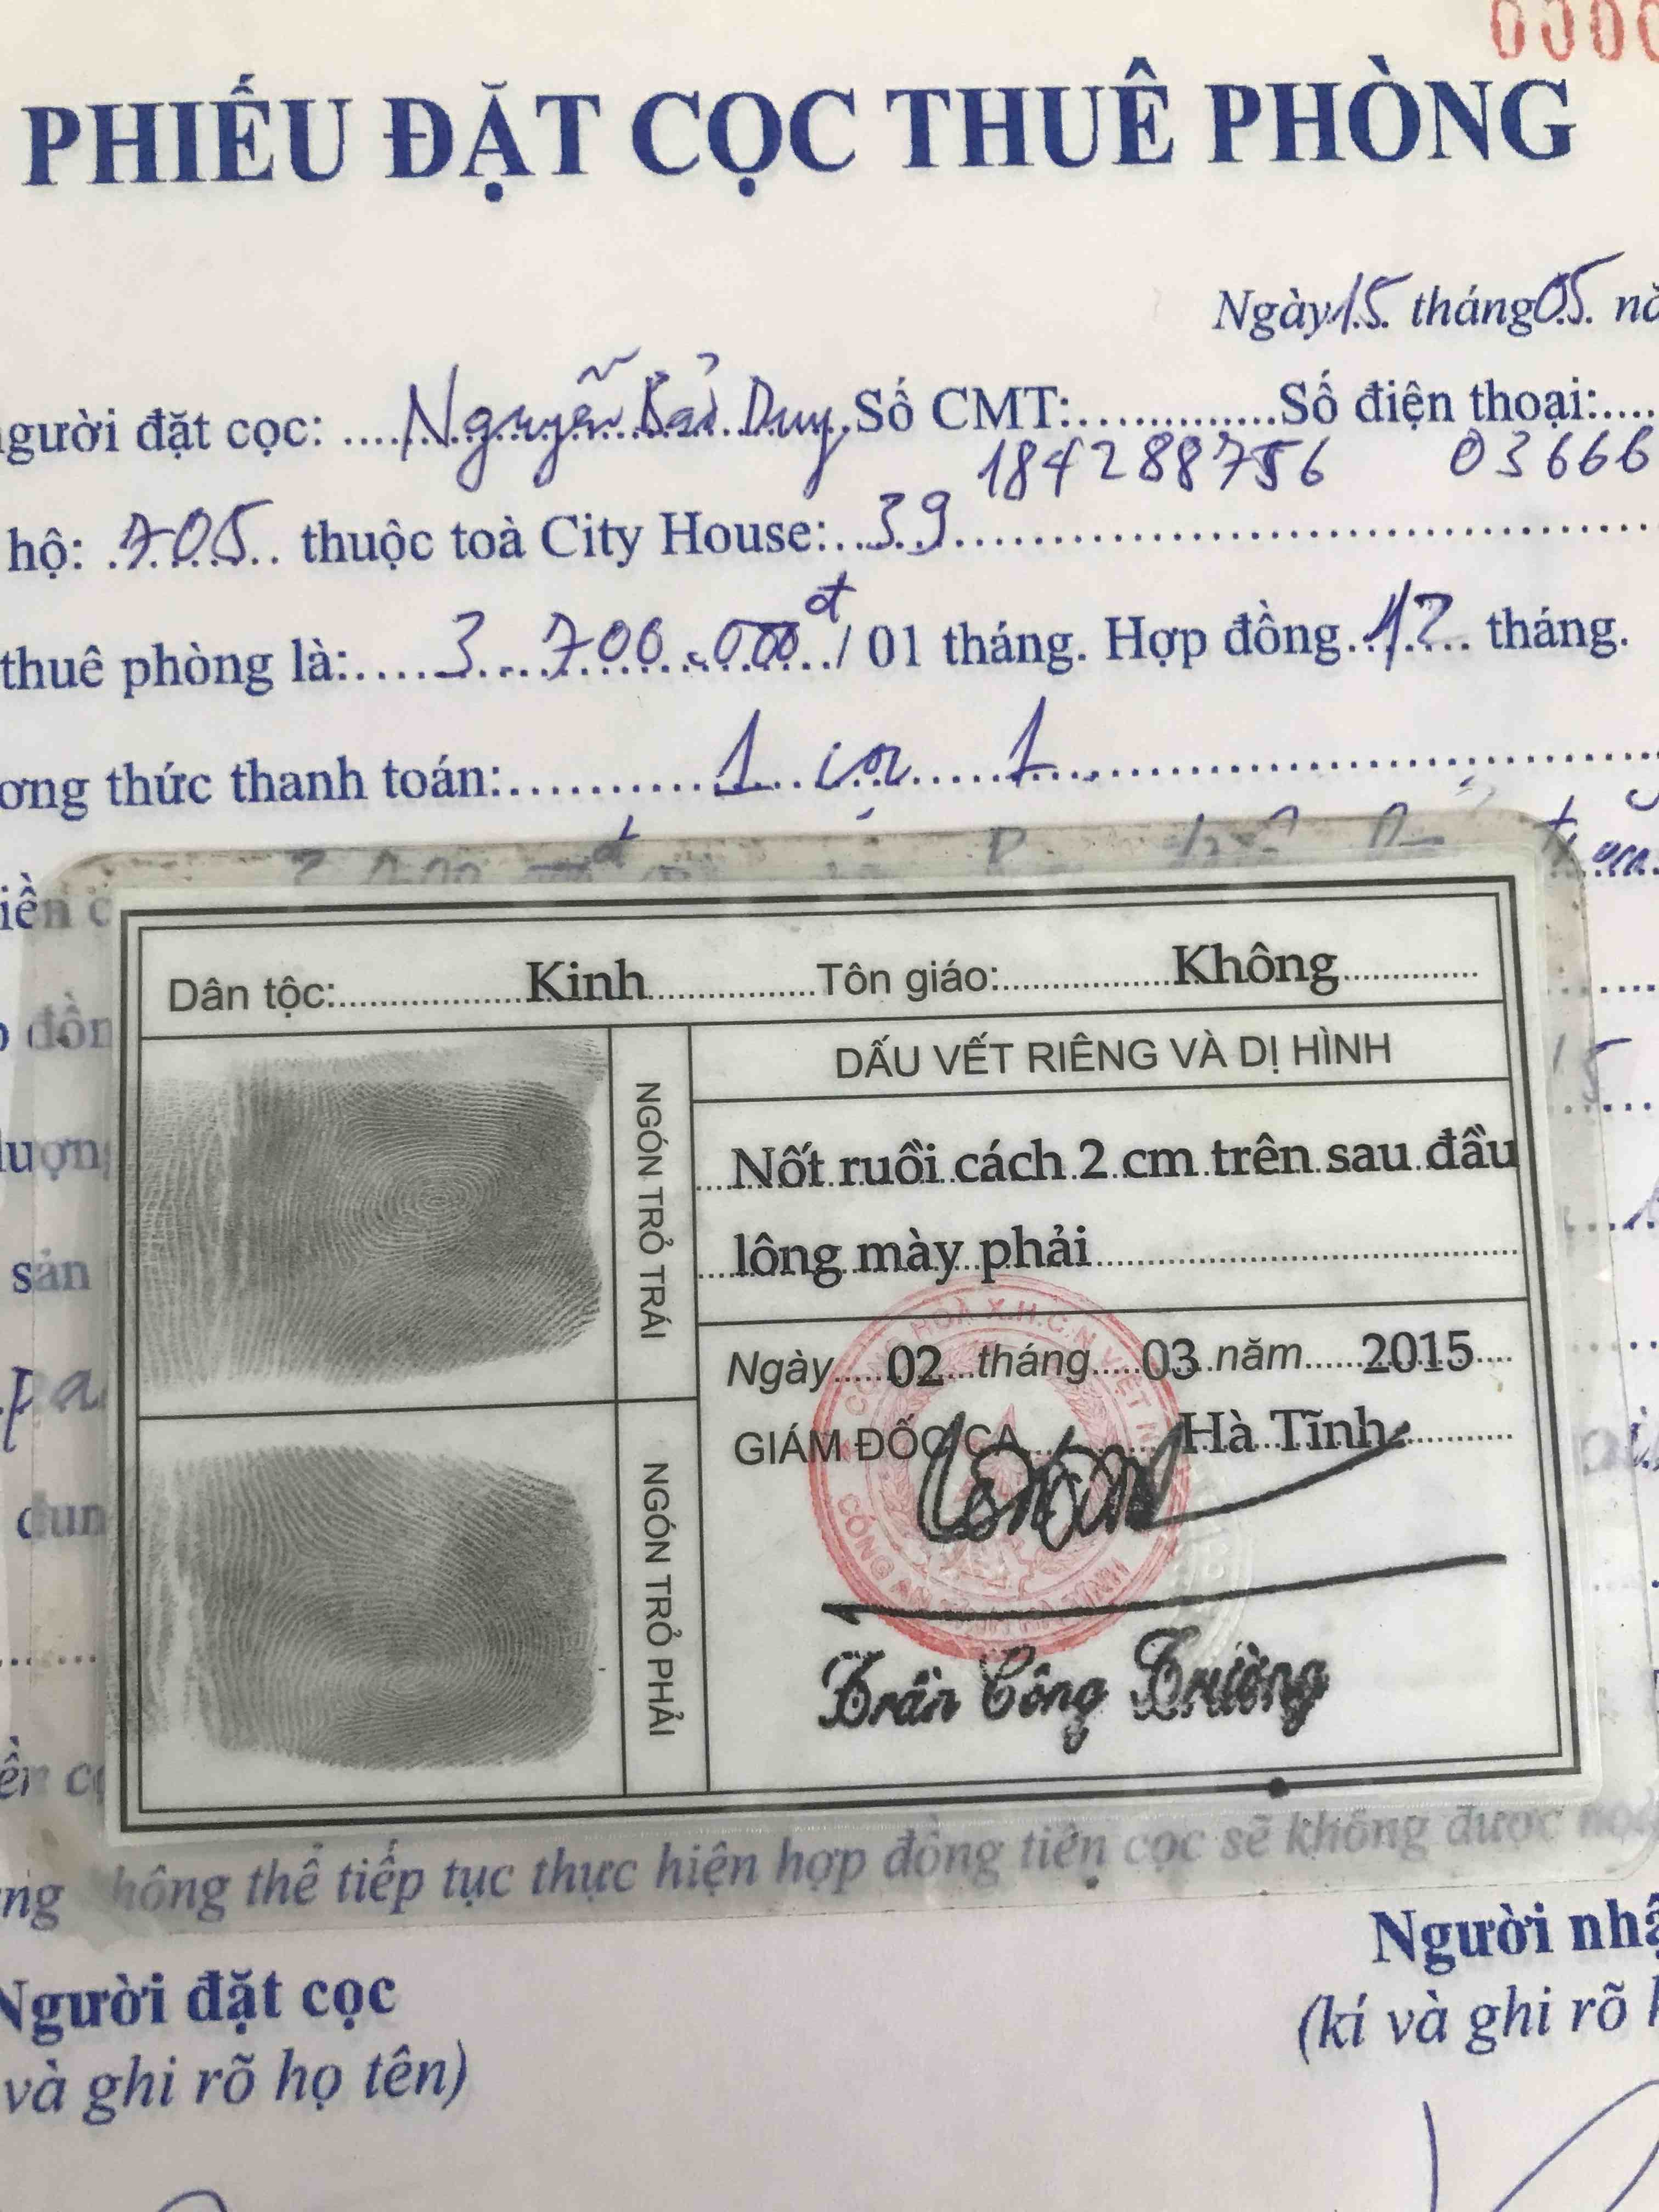 0000
PHIẾU ĐẶT CỌC THUÊ PHÒNG
Ngày 15 tháng 05
gười đặt cọc: Nguyễn Bảo Duy Số CMT: 184288756 Số điện thoại: 03666
hộ: 705 thuộc toà City House: 39
thuê phòng là: 3.700.000đ / 01 tháng. Hợp đồng 12 tháng.
ơng thức thanh toán: 1 cọc 1
iền c
Dân tộc: Kinh Tôn giáo: Không
đồn
DẤU VẾT RIÊNG VÀ DỊ HÌNH
NGÓN TRỎ TRÁI
lượn
Nốt ruồi cách 2 cm trên sau đầu
sản
lông mày phải
Ngày 02 tháng 03 năm 2015
GIÁM ĐỐC CA Hà Tĩnh
dun
NGÓN TRỎ PHẢI
Trần Công Trường
ền cọ
ng hông thể tiếp tục thực hiện hợp đồng tiền cọc sẽ không được
Người nhậ
Người đặt cọc
(kí và ghi rõ
và ghi rõ họ tên)